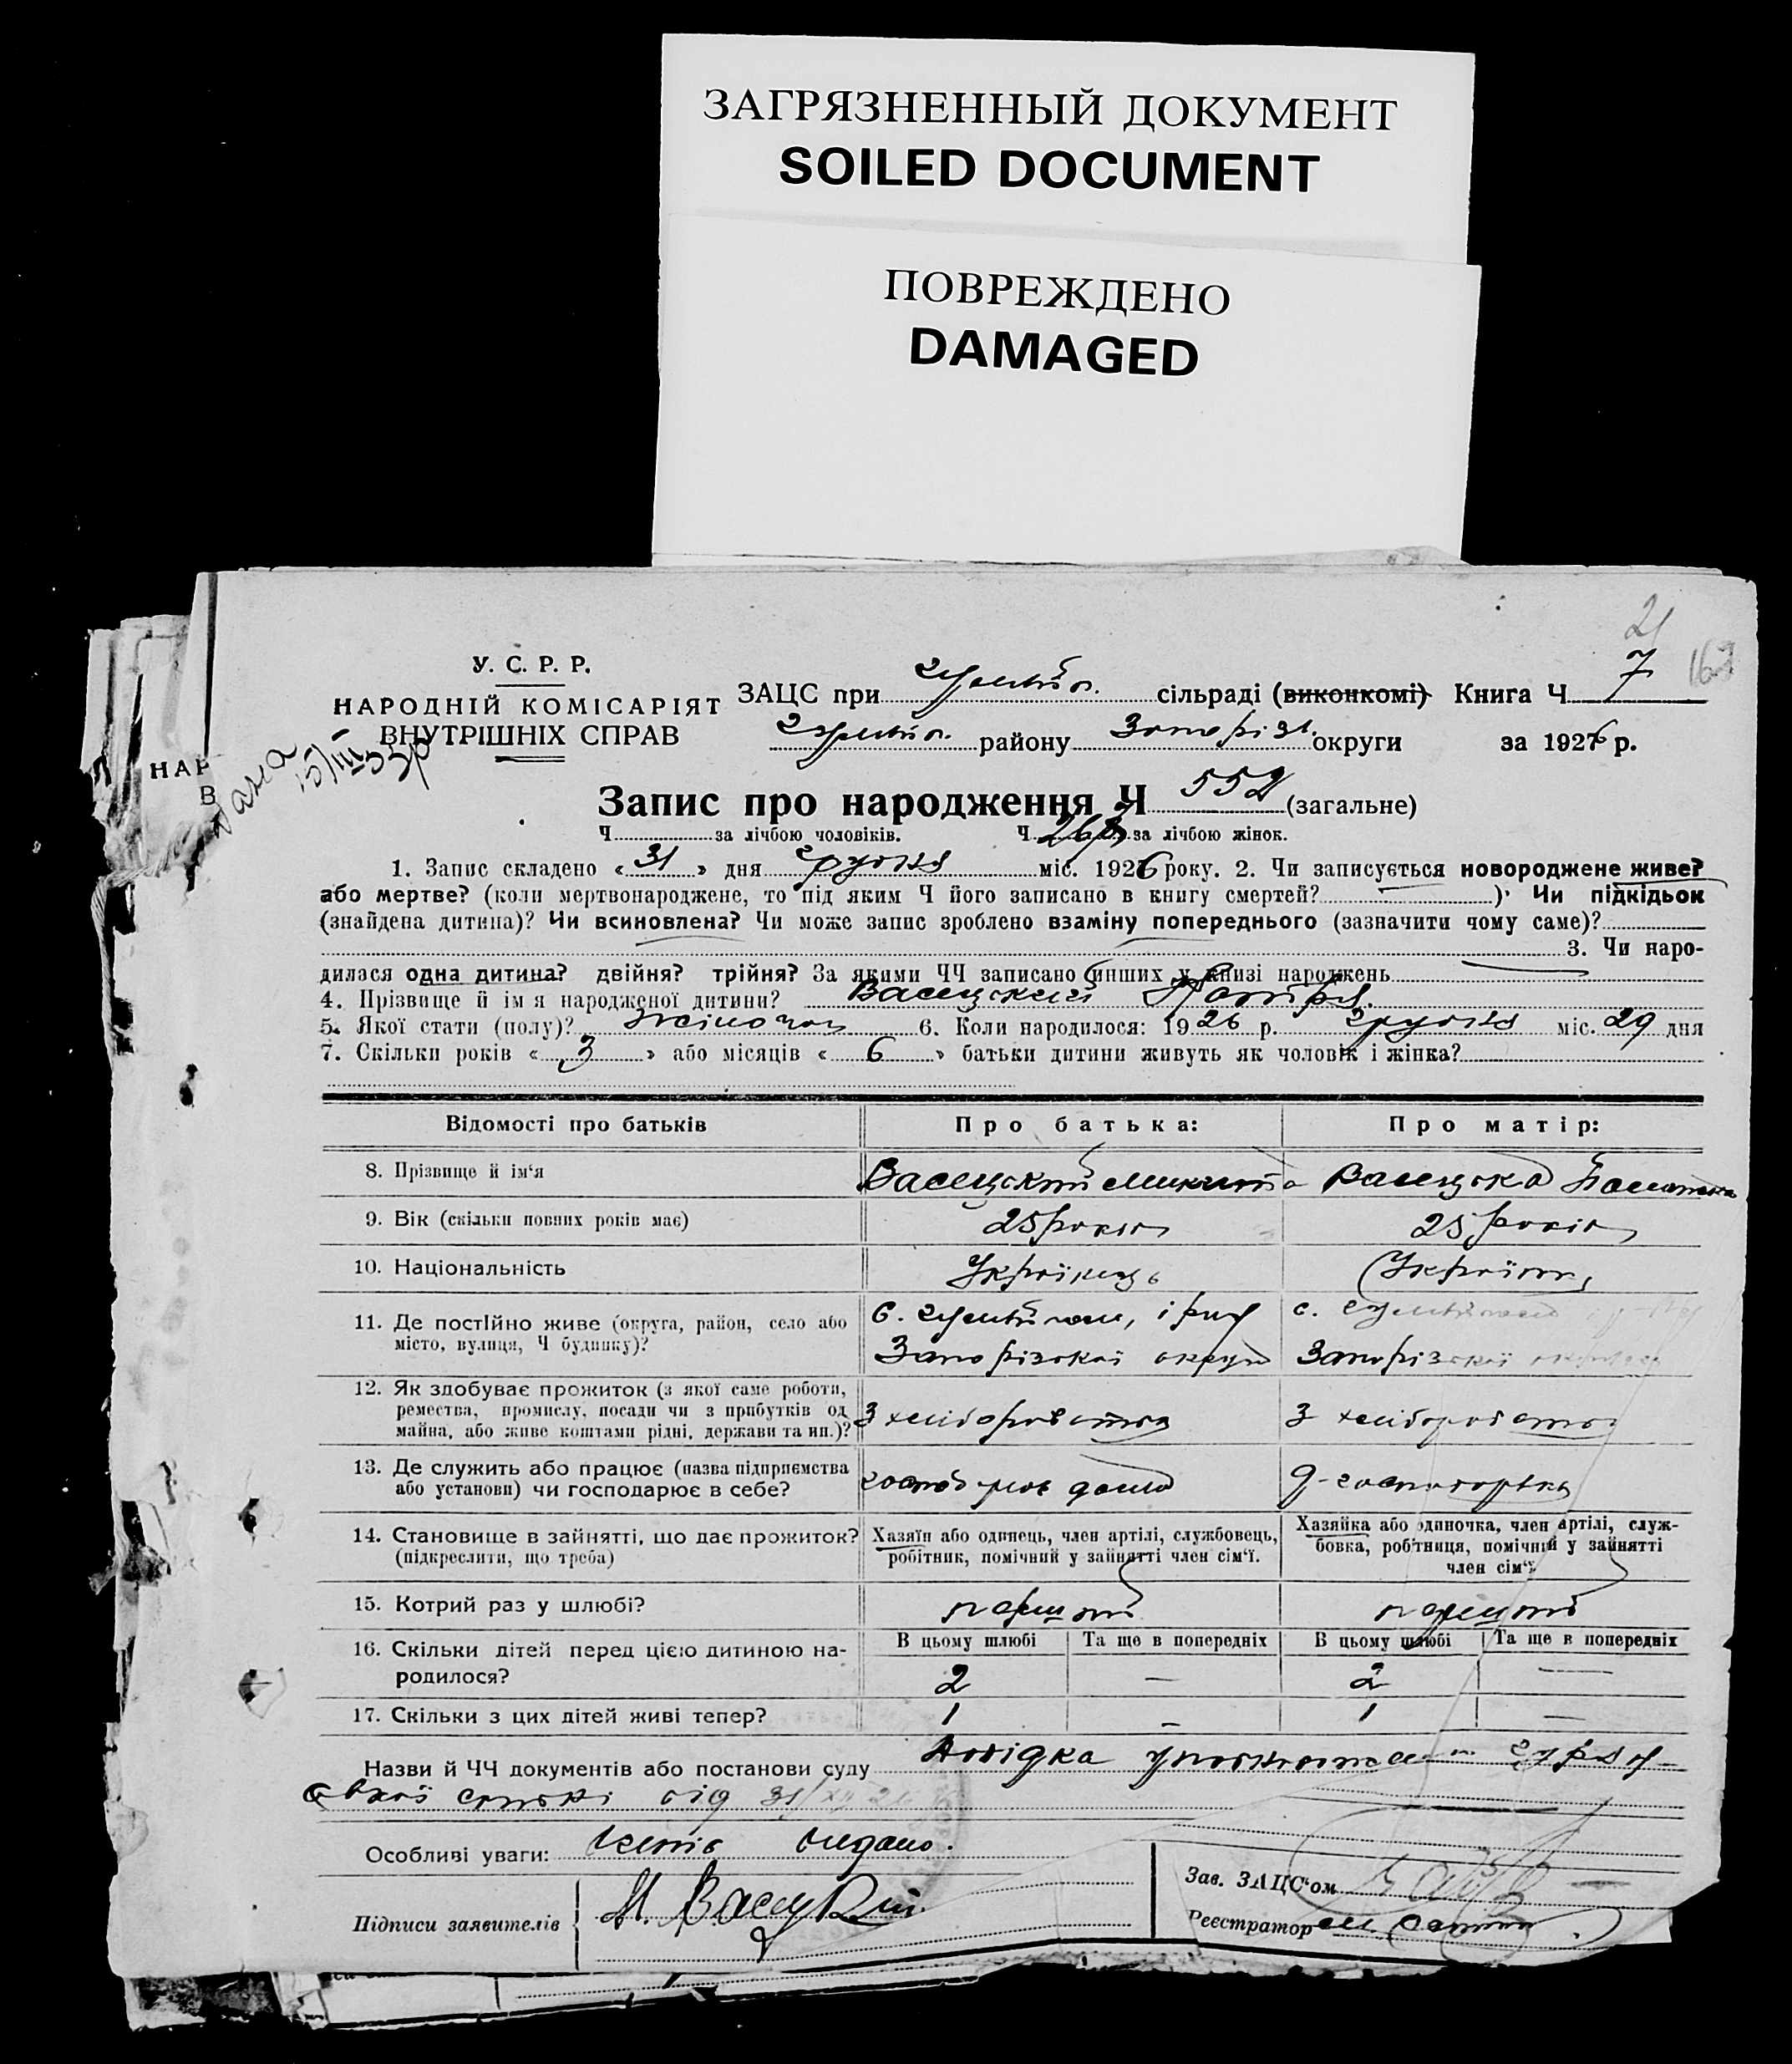 ЗАГРЯЗНЕННЫЙ ДОКУМЕНТ
SOILED DOCUMENT
ПОВРЕЖДЕНО
DAMAGED
21
7
167
У. С. Р. Р.
НАРОДНІЙ КОМІСАРІЯТ
ВНУТРІШНІХ СПРАВ
НАР
В
ЗАЦС при сільраді (виконкомі) Книга Ч
району Запоріз. округи за 1926 р.
Запис про народження Ч 552 (загальне)
Ч за лічбою чоловіків. Ч 268 за лічбою жінок.
1. Запис складено « 31 » дня грудня міс. 1926 року. 2. Чи записується новороджене живе?
або мертве? (коли мертвонароджене, то під яким Ч його записано в книгу смертей? — ). Чи підкідьок
(знайдена дитина)? Чи всиновлена? Чи може запис зроблено взаміну попереднього (зазначити чому саме)?
3. Чи наро-
дилася одна дитина? двійня? трійня? За якими ЧЧ записано инших у книзі народжень —
4. Прізвище й ім'я народженої дитини? Васецский
5. Якої стати (полу)? жіночої 6. Коли народилося: 1926 р. грудня міс. 29 дня
7. Скільки років « 3 » або місяців « 6 » батьки дитини живуть як чоловік і жінка?
Відомості про батьків Про батька: Про матір:
8. Прізвище й ім'я Васецский Микита Васецска
9. Вік (скільки повних років має) 25 років 25 років
10. Національність Українець Українка
11. Де постІйно живе (округа, район, село або с. с.
місто, вулиця, Ч будинку)? Запорізскої округи Запорізскої округи
12. Як здобуває прожиток (з якої саме роботи,
ремества, промислу, посади чи з прибутків од З хліборобства З хліборобства
майна, або живе коштами рідні, держави та ин.)?
13. Де служить або працює (назва підприємства
або установи) чи господарює в себе? дома
14. Становище в зайнятті, що дає прожиток? Хазяїн або одинець, член артілі, службовець, Хазяйка або одиночка, член артілі, служ-
(підкреслити, що треба) робітник, помічний у зайнятті член сім'ї. бовка, робітниця, помічний у зайнятті
член сім'ї
15. Котрий раз у шлюбі? перший перший
16. Скільки дітей перед цією дитиною на- В цьому шлюбі Та ще в попередніх В цьому шлюбі Та ще в попередніх
родилося? 2 — 2 —
17. Скільки з цих дітей живі тепер? 1 — 1 —
Назви й ЧЧ документів або постанови суду Довідка
від 31/XII 26
Особливі уваги: видано.
Підписи заявителів М. Васецкий
Зав. ЗАЦС'ом
Реєстратор